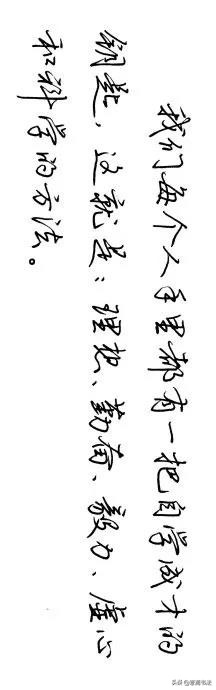 我们每个人手里都有一把自学成才的
钥匙，这就是：理想、勤奋、毅力、虚心
和科学的方法。